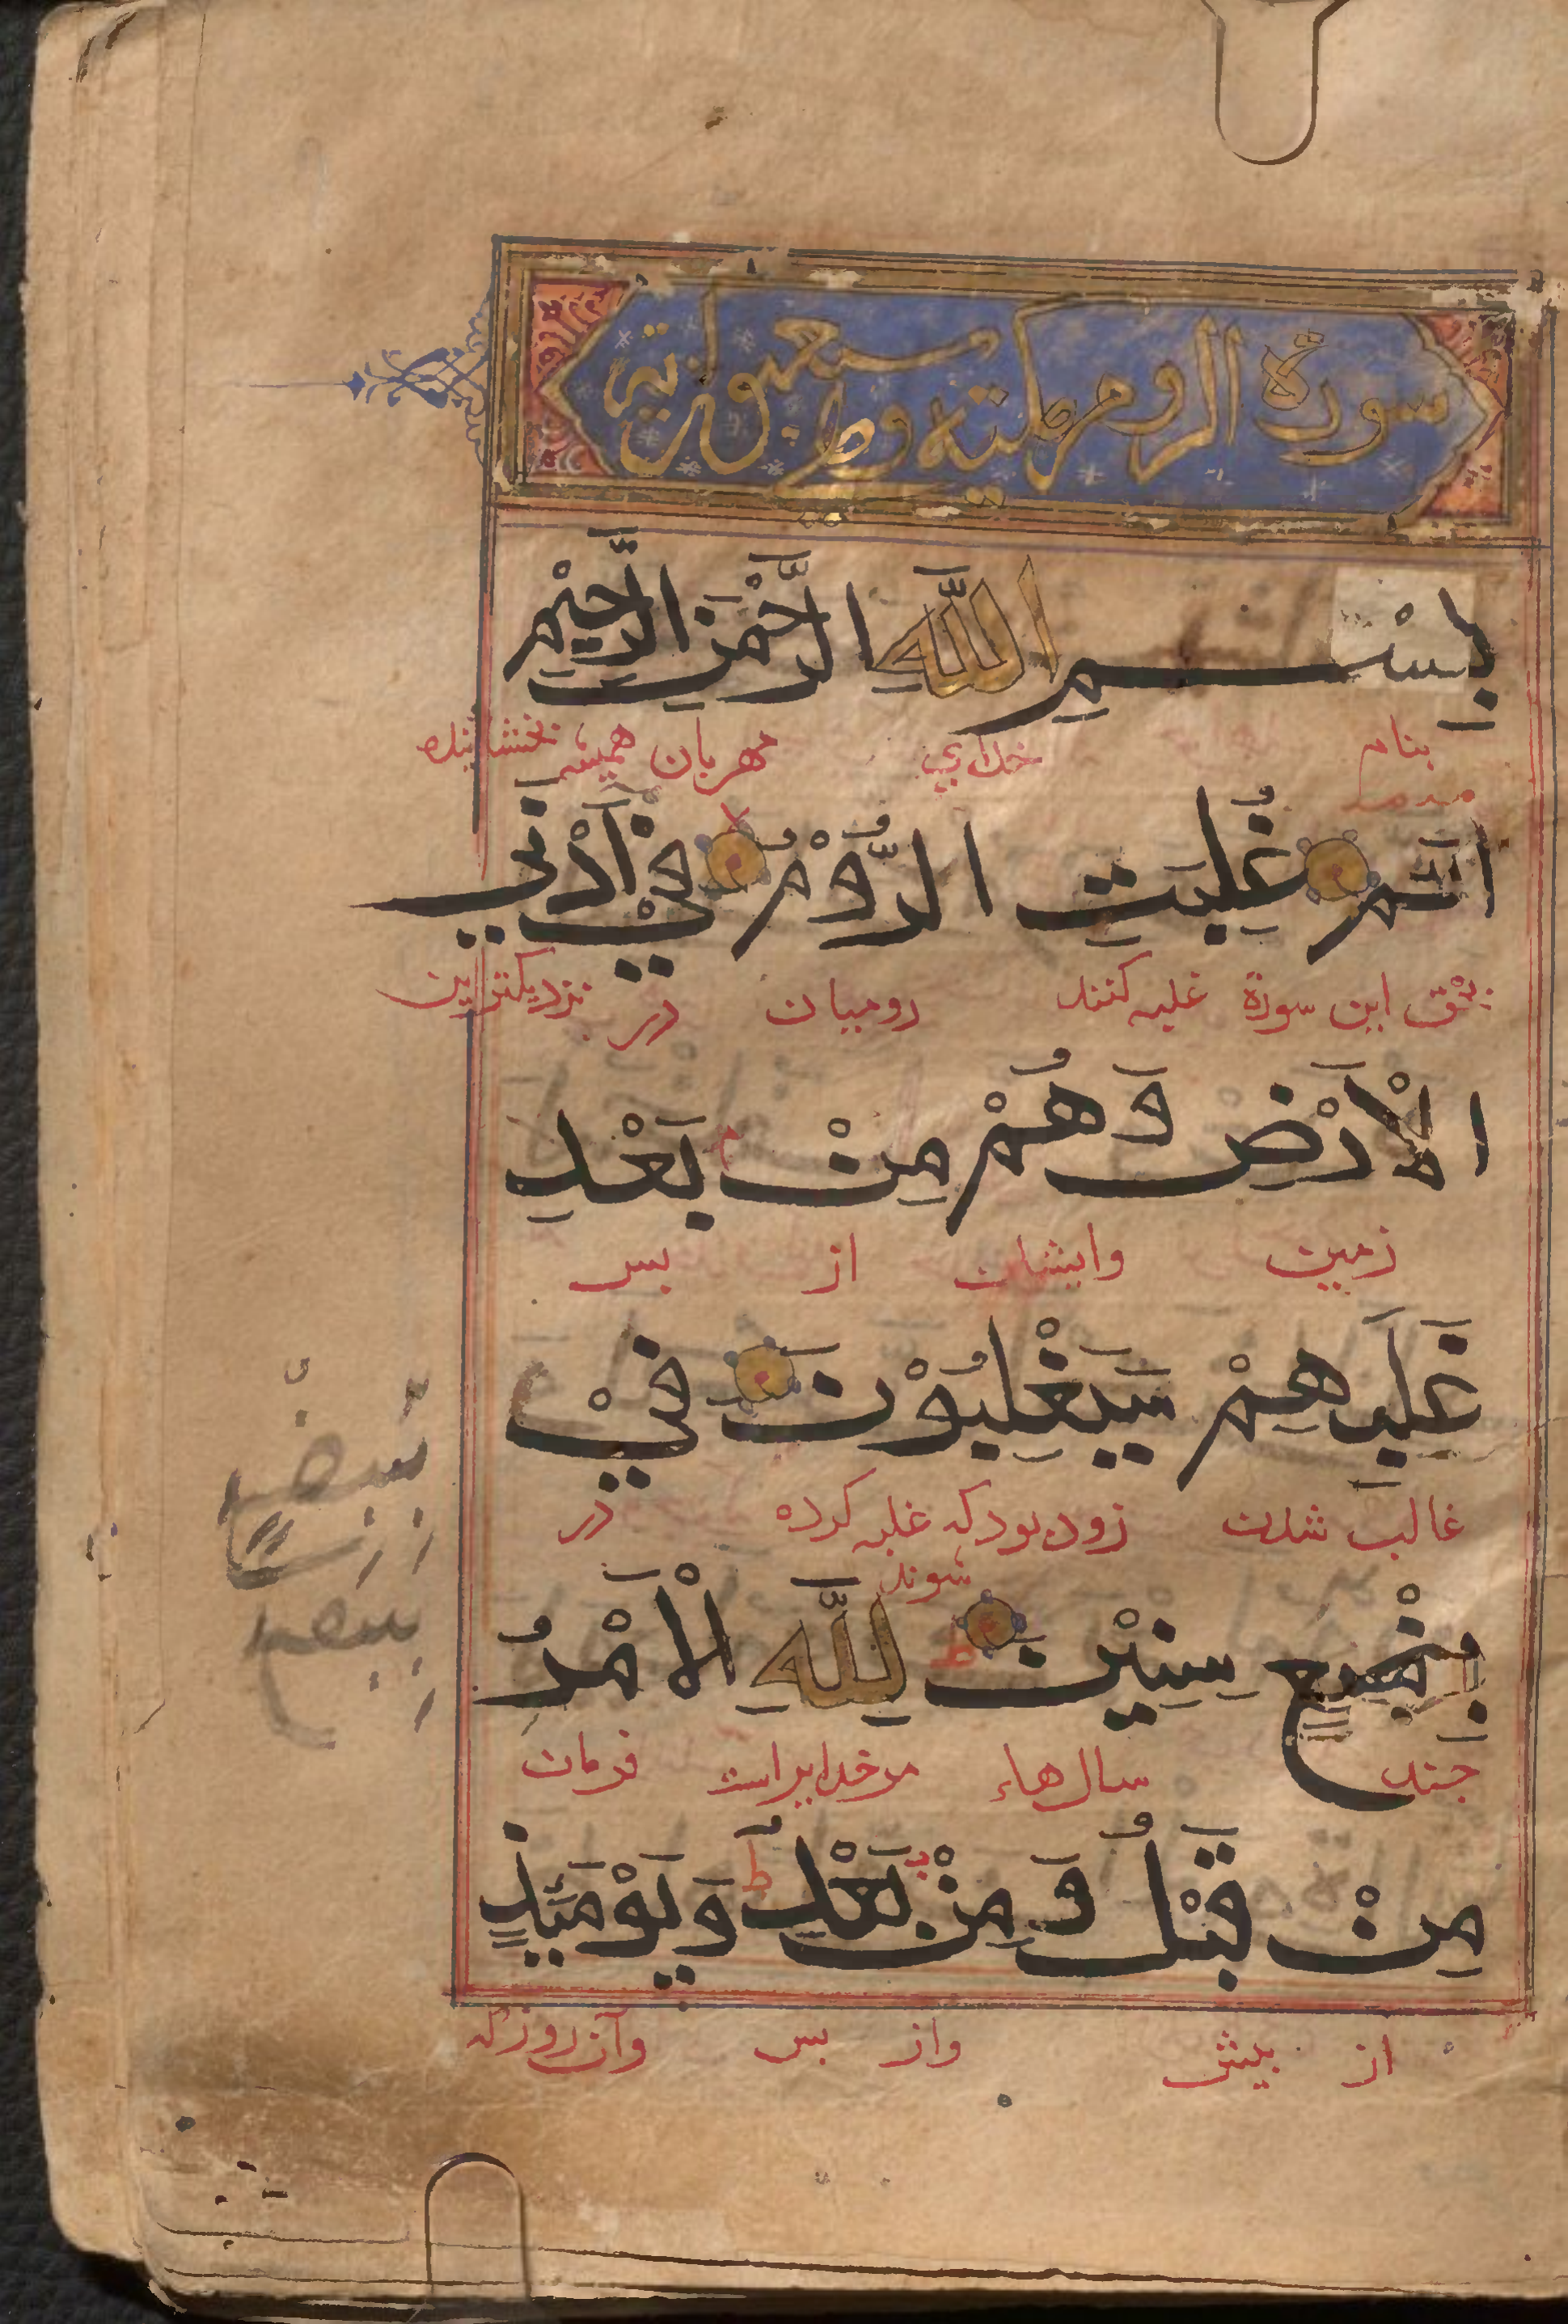 سورة الروم مكية وهي سبعون آية
بِسْمِ اللَّهِ الرَّحْمَنِ الرَّحِيْمِ
بنام خدای مهربان همیشه بخشاینده
الٓم غُلِبَتِ الرُّوْمُ فِيْ أَدْنَى
بحق این سورة غلبه کنند رومیان در نزدیکترین
الْأَرْضِ وَهُمْ مِنْ بَعْدِ
زمین وایشان از بس
غَلَبِهِمْ سَيَغْلِبُوْنَ فِيْ
غالب شدن زود بود که غلبه کرده در
شوند
بِضْعِ سِنِيْنَ لِلَّهِ الْأَمْرُ
جند سال هاء مر خدایراست فرمان
مِنْ قَبْلُ وَ مِنْ بَعْدُ وَيَوْمَئِذٍ
از بیش واز بس وآن روز که